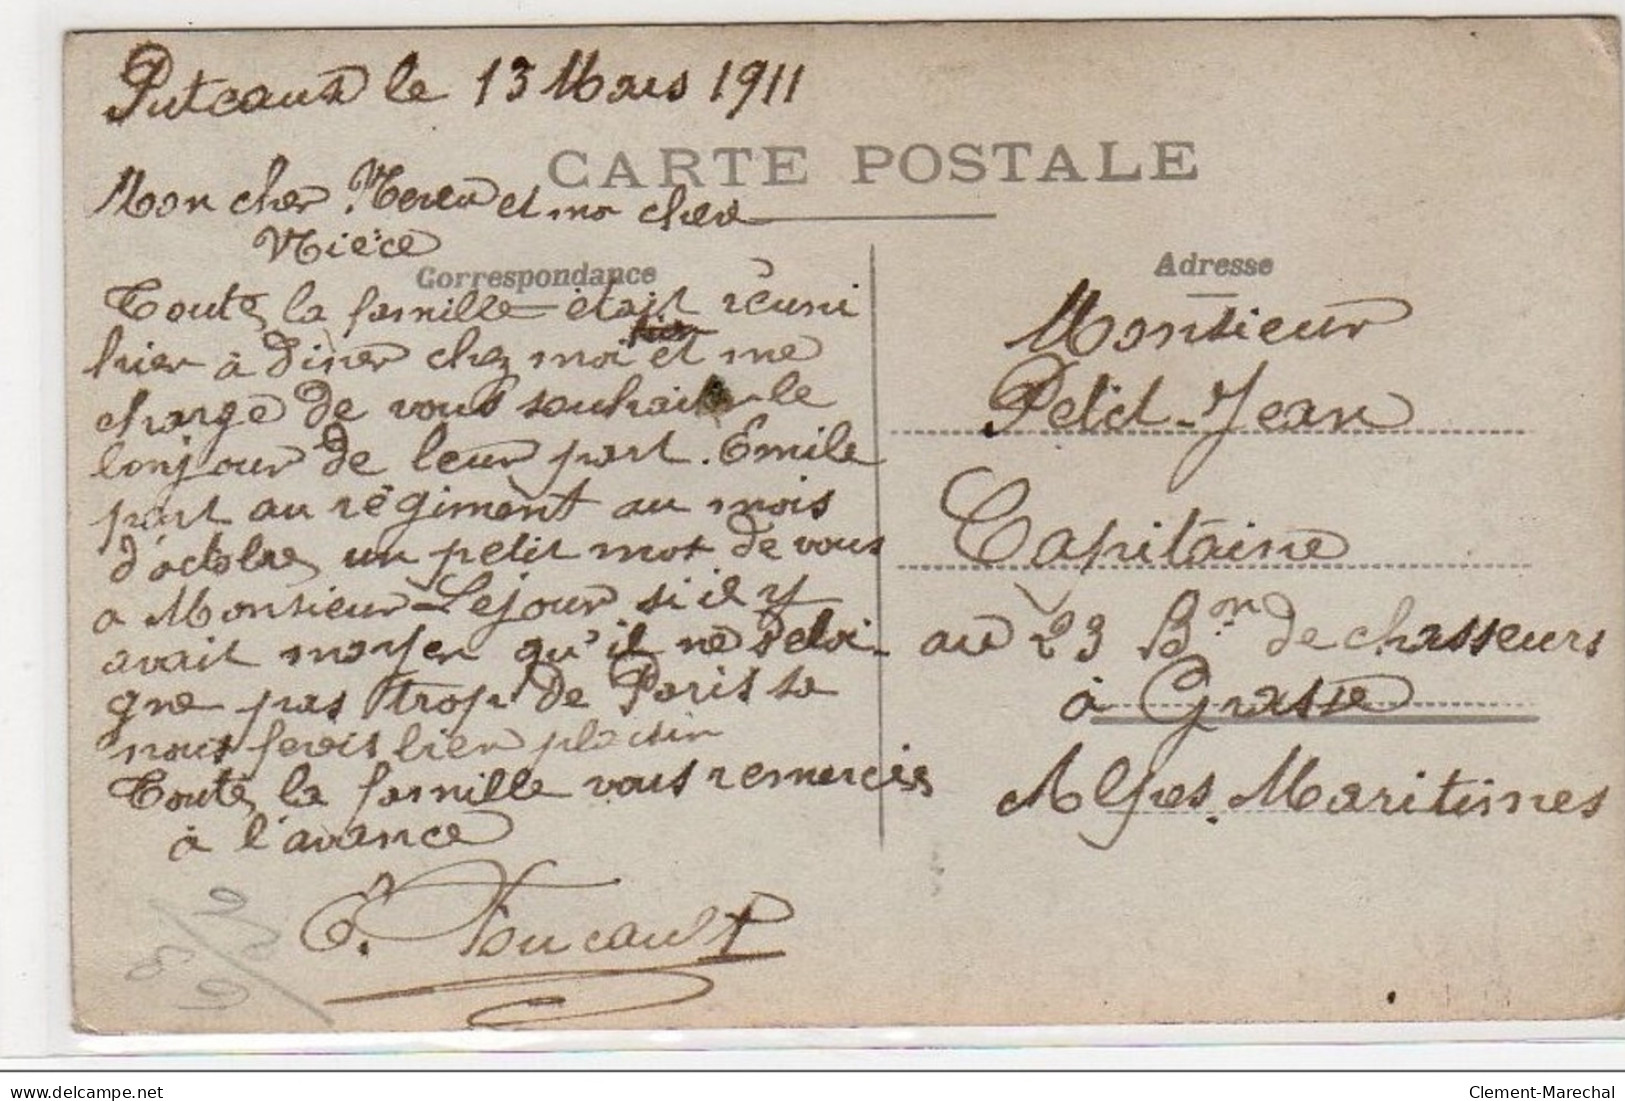 Puteaux le 13 Mars 1911
CARTE POSTALE
Mon cher Neveu et ma chere
Nièce
Correspondance
Toute la famille était réuni
hier à diner chez moi et me
charge de vous souhaiter le
bonjour de leur part. Emile
part au régiment au mois
d'octobre un petit mot de vous
a Monsieur Lejour si il y
avait moyen qu'il ne s'eloi-
gne pas trop de Paris sa
nous ferais bien plaisir
Toute la famille vous remercies
à l'avance
E. Foucault
Adresse
Monsieur
Petit-Jean
Capitaine
au 23 Bon de chasseurs
à Grasse
Alpes. Maritimes
delcampe.net
Clement-Marechal